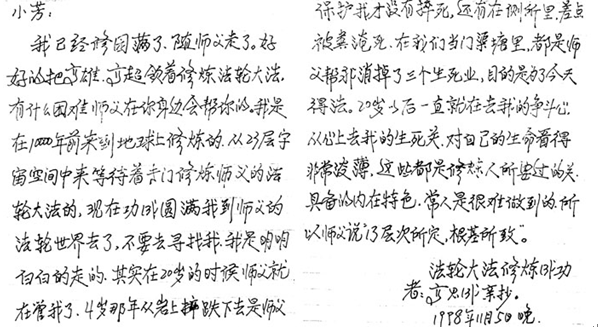 小芳:
我已经修圆满了、随师父走了、好
好的把高雄、高超领着修炼法轮大法,
有什么困难师父在你身边会帮你的。我是
在1000年前来到地球上修炼的、从23层宇
宙空间中来等待着专门修炼师父的法
轮大法的,现在功成圆满我到师父的
法轮世界去了,不要去寻找我、我是明明
白白的走的、其实在20岁的时候师父就
在管我了、4岁那年从岩上摔跌下去是师父
保护我才没有摔死,还有在厕所里差点
被粪淹死、在我们当门粟塘里,都是师
父帮我消掉了三个生死业,目的是为了今天
得法。20岁以后一直就在去我的争斗心
从心上去我的生死关、对自己的生命看得
非常淡薄、这些都是修炼人所要过的关、
具备的内在特色、常人是很难做到的、所
以师父说“层次所定,根基所致”。
法轮大法修炼成功
者:高恩成亲抄。
1998年11月5日晚、